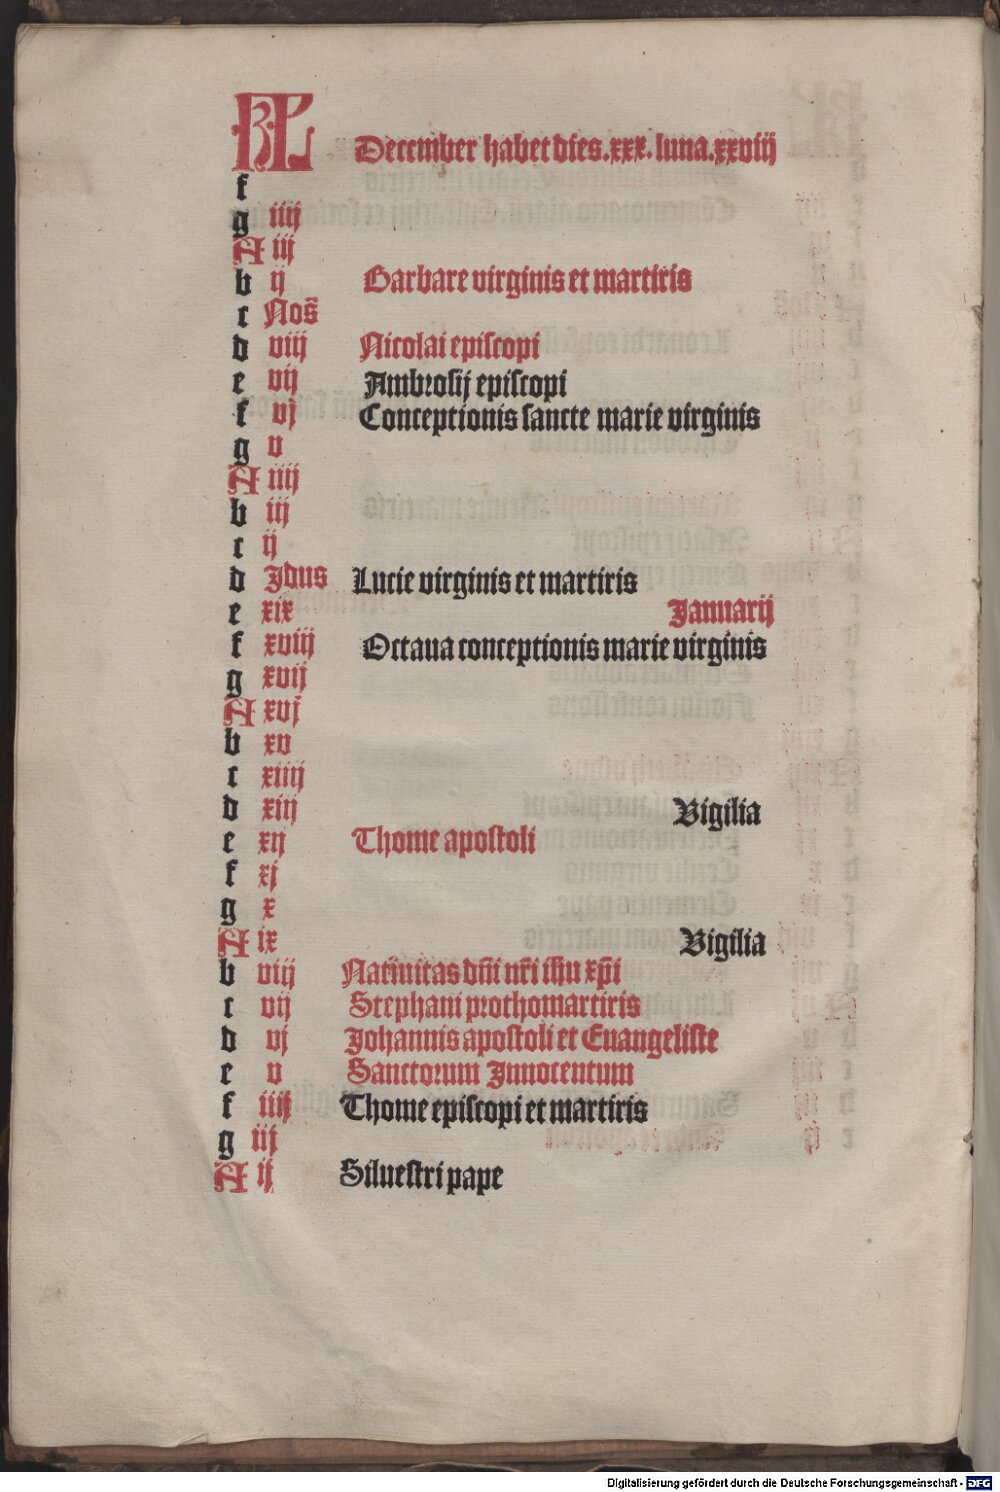 KL December habet dies.xxx.luna.xxviij
f
g iiij
A iij
b ij Barbare virginis et martiris
c Nos̄
d viij Nicolai episcopi
e vij Ambrosij episcopi
f vj Conceptionis sancte marie virginis
g v
A iiij
b iij
c ij
d Jdus Lucie virginis et martiris
e xix Januarij
f xviij Octaua conceptionis marie virginis
g xvij
A xvj
b xv
c xiiij
d xiij Vigilia
e xij Thome apostoli
f xj
g x
A ix Vigilia
b viij Natiuitas dn̄i nr̄i ih̄u xp̄i
c vij Stephani prothomartiris
d vj Johannis apostoli et Euangeliste
e v Sanctorum Jnnocentum
f iiij Thome episcopi et martiris
g iij
A ij Siluestri pape
Digitalisierung gefördert durch die Deutsche Forschungsgemeinschaft - DFG